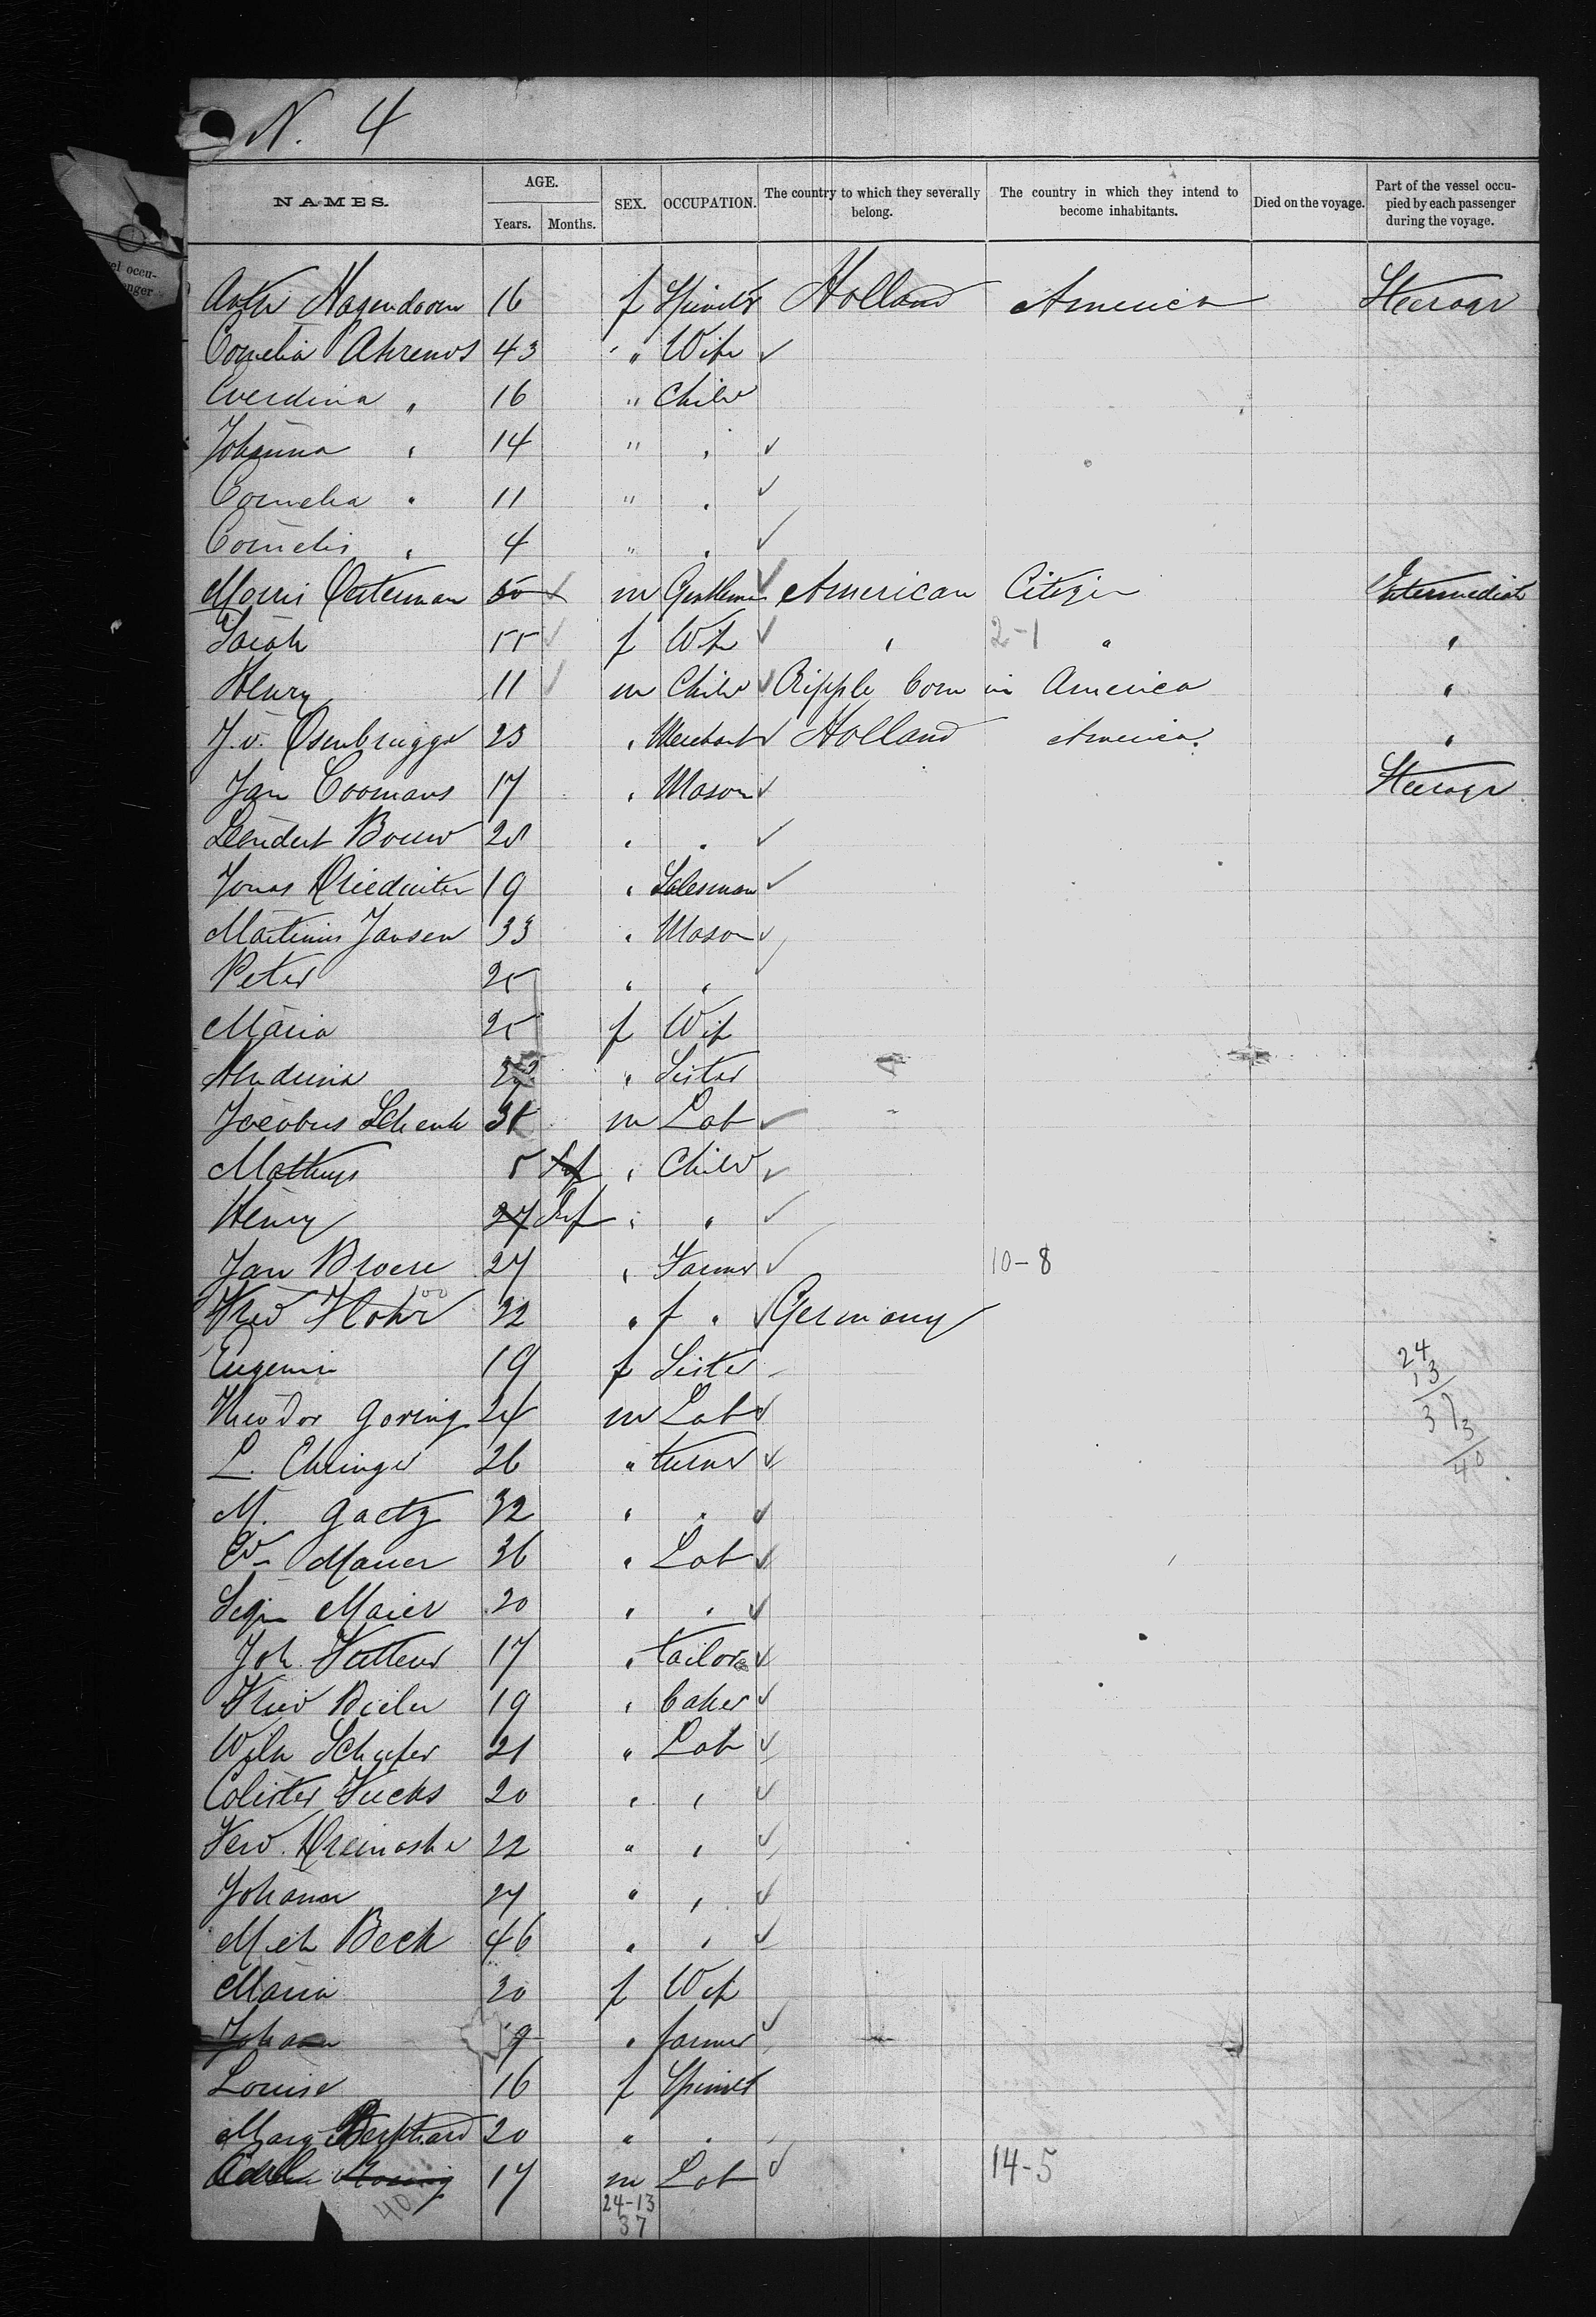 N. 4
NAMES. AGE. Years. Months. SEX. OCCUPATION. The country to which they severally belong. The country in which they intend to become inhabitants. Died on the voyage. Part of the vessel occupied by each passenger during the voyage.
el occu-
enger
Hagendoorn 16 f Holland America Steerage
Cornelia Ahrends 43 " Wife
Everdina " 16 " Child
Johanna " 14 " "
Cornelia " 11 " "
Cornelis " 4 " "
Morris Oesterman 50 m Gentleman American Citizen Intermediate
Sarah 55 f Wife " 2-1 " "
Henry 11 m Child Ripple Corn in America "
J. v. Osenbrugge 23 " Merchant Holland America "
Jan Coomans 17 " Mason Steerage
Leendert Bouw " "
Jonas 19 " Salesman
Martinus Jansen 33 " Mason
Peter 25 " "
Maria 25 f Wife
" Sister
Jacobus Schenk m Lab
Mathys 5 Inf " Child
Henry 27 Inf " "
Jan Broere 27 " Farmer 10-8
32 " f " Germany
Eugenie 19 f Sister
24
13
37
3
40
Theodor Goring 24 m Lab
L. Ehringer 26 " turner
M. Gaetz 32 " "
Mauer 36 " Lab
Maier 20 " "
Joh. 17 " tailor
19 " baker
Wilh Schafer 21 " Lab
Fuchs 20 " "
22 " "
Johann 27 " "
Mich Beck 46 " "
Maria 30 f Wife
Johann 19 " farmer
Louise 16 f
Marg Bernhard 20 " "
17 m Lab 14-5
40
24-13
37